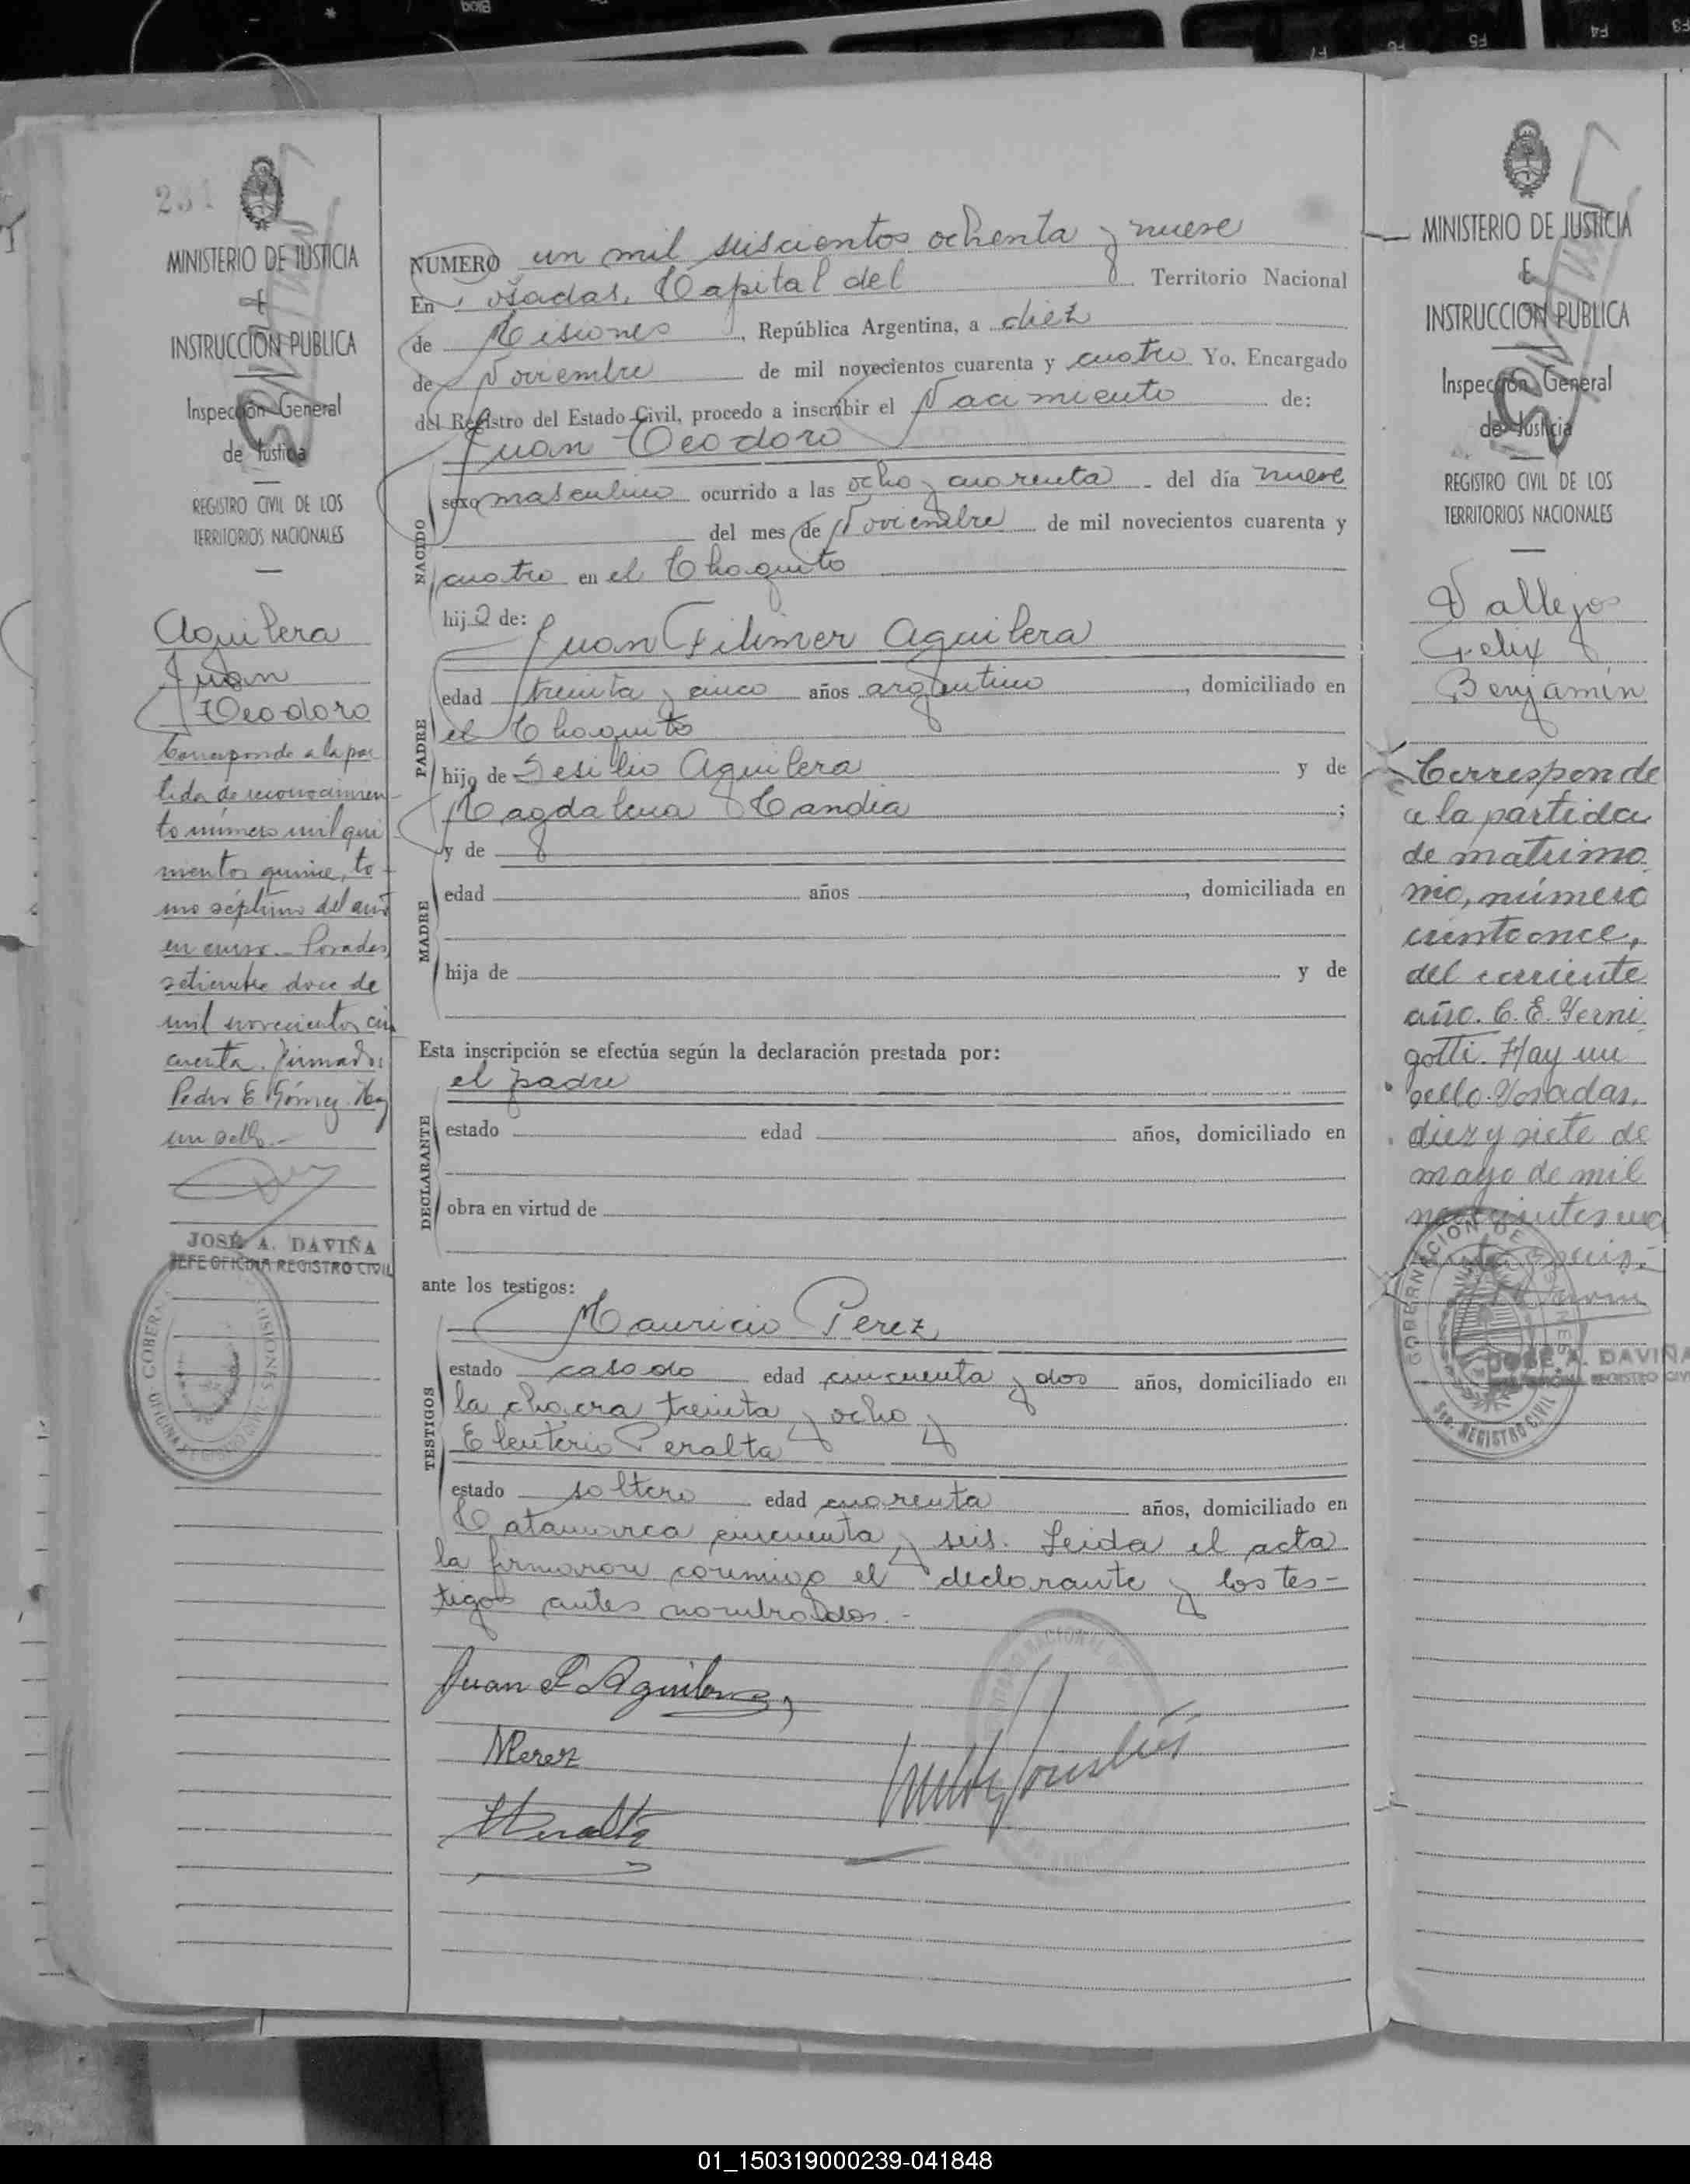 231
MINISTERIO DE JUSTICIA
E
INSTRUCCION PUBLICA
Inspección General
de Justicia
REGISTRO CIVIL DE LOS
TERRITORIOS NACIONALES
Aguilera
Juan
Teodoro
Corresponde a la par
tida de reconocimien
to número mil qui
nientos quince, to
mo séptimo del año
en curso. Posadas,
setiembre doce de
mil novecientos cin
cuenta. Firmado:
Pedro E. Gómez. Hay
un sello.-
JOSÉ A. DAVIÑA
JEFE OFICINA REGISTRO CIVIL
NUMERO un mil seiscientos ochenta y nueve
En Posadas, Capital del Territorio Nacional
de Misiones, República Argentina, a diez
de Noviembre de mil novecientos cuarenta y cuatro Yo, Encargado
del Registro del Estado Civil, procedo a inscribir el Nacimiento de:
Juan Teodoro
NACIDO
sexo masculino ocurrido a las ocho y cuarenta del día nueve
del mes de Noviembre de mil novecientos cuarenta y
cuatro en el Chaquito
hijo de:
Juan Filimer Aguilera
PADRE
edad treinta y cinco años argentino, domiciliado en
el Chaquito
hijo de Aguilera y de
Magdalena Candia;
y de
MADRE
edad años, domiciliada en
hija de y de
Esta inscripción se efectúa según la declaración prestada por:
el padre
DECLARANTE
estado edad años, domiciliado en
obra en virtud de
ante los testigos:
Mauricio Perez
TESTIGOS
estado casado edad cincuenta y dos años, domiciliado en
la chacra treinta y ocho y
Eleuterio Peralta
estado soltero edad cuarenta años, domiciliado en
Catamarca cincuenta y seis. Leida el acta
la firmaron conmigo el declarante y los tes-
tigos antes nombrados.-
Juan F Aguilera
MPerez
EPeralta
MINISTERIO DE JUSTICIA
E
INSTRUCCION PUBLICA
Inspección General
de Justicia
REGISTRO CIVIL DE LOS
TERRITORIOS NACIONALES
Vallejos
Felix
Benjamín
Corresponde
a la partida
de matrimo
nio, número
ciento once,
del corriente
año. C. E. Verni
gotti. Hay un
sello. Posadas,
diez y siete de
mayo de mil
JOSÉ A. DAVIÑA
REGISTRO CIVIL
01_150319000239-041848